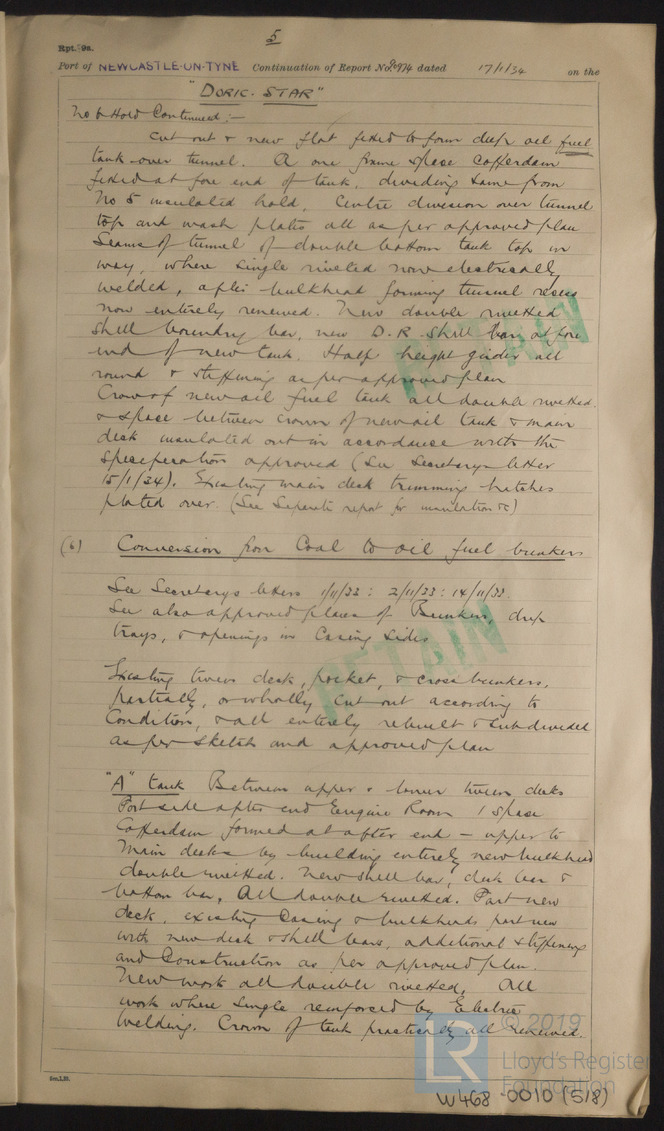 5
Rpt. 9a.
Port of NEWCASTLE-ON-TYNE Continuation of Report No. 90974 dated 17/1/34 on the
"DORIC STAR"
No 6 Hold Continued :-
Cut out & new flat fitted to form deep oil fuel
tank over tunnel. A one frame space Cofferdam
fitted at fore end of tank, dividing same from
No 5 insulated hold. Centre division over tunnel
top and wash plates all as per approved plan
Seams of tunnel & double bottom tank top in
way, where single riveted now electrically
welded, after bulkhead forming tunnel recess
now entirely renewed. New double riveted
shell boundry bar, new D.R. shell bar at fore
end of new tank. Half height girder all
round & stiffening as per approved plan
Crown of new oil fuel tank all double riveted
& space between crown of new oil tank & main
deck insulated out in accordance with the
specification approved (See Secretarys letter
15/1/34). Existing main deck trimming hatches
plated over. (See Separate report for insulation &c)
(6) Conversion from Coal to oil fuel bunkers
See Secretarys letters 1/11/33 : 2/11/33 : 14/11/33.
See also approved plans of Bunkers, drip
trays, & openings in Casing sides
Existing tween deck, pocket, & cross bunkers,
partially, or wholly cut out according to
Condition, & all entirely rebuilt & subdivided
as per sketch and approved plan
"A" tank Between upper & lower tween decks
Port side after end Engine Room 1 space
Cofferdam formed at after end - upper to
Main decks by building entirely new bulkhead
double riveted. New shell bar, deck bar &
bottom bar, All double riveted. Part new
deck, existing Casing & bulkheads part new
with new deck & shell bars, additional stiffening
and Construction as per approved plan.
New work all double riveted, All
work where single reinforced by Electric
Welding. Crown of tank practically all renewed.
RETAIN
RETAIN
© 2019
LR
Lloyd's Register
Foundation
W468-0010 (5/8)